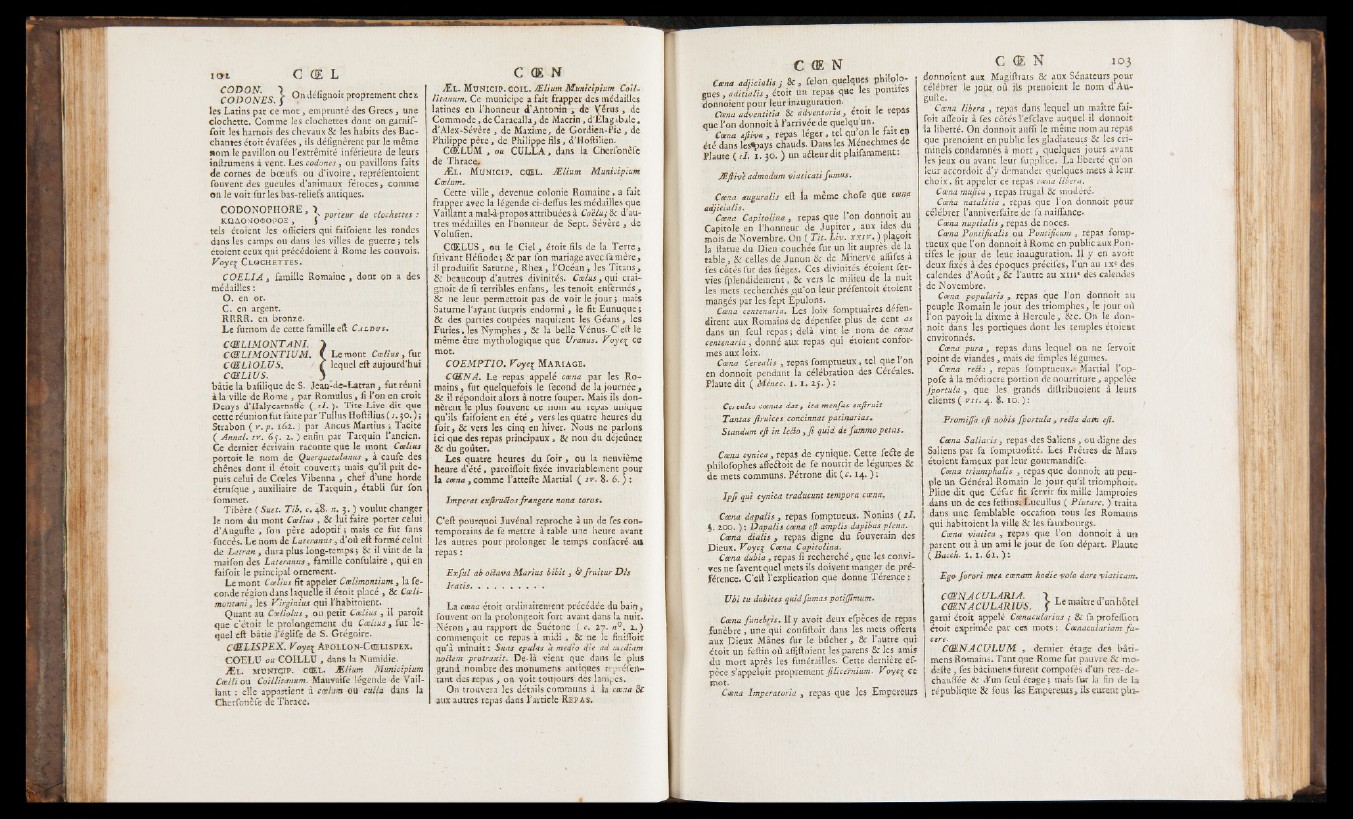 102 C Œ L
CODON.
CODONES.
On désignoit proprement chez
les Latins par ce mot, emprunté des Grecs, une
clochette. Comme les clochettes dont on garnis-
soit les harnois des chevaux & les habits des Bac-
chantes étoit évasées, ils désignèrent par le même
nom le pavillon ou l'extrêmité inférieure de leurs
instrumens à vent. Les codones, ou pavillons faits
de cornes de bœufs ou d'ivoire, représentoient
souvent des gueules d'animaux féroces, comme
on le voit sur les bas-reliefs antiques.
CODONOPHORE,
ΚΩΔΟΝΟΦΟΡΟΣ,
porteur de clochettes :
tels étoient les officiers qui faisoient les rondes
dans les camps ou dans les villes de guerre; tels
étoient ceux qui précédoient à Rome les convois.
Voyez CLOCHETTES.
COELIA, famille Romaine, dont on a des
médailles :
O. en or.
C. en argent.
RRRR. en bronze.
Le surnom de cette famille est CALDUS.
CŒLIMONTANI.
CŒLIMONTIUM.
CŒLIOLUS.
CŒLIUS.
Le mont Cœlius, sur
lequel est aujourd'hui
bâtie la basilique de S. Jean-de-Lattan, fut réuni
à la ville de Rome, par Romulus, si l'on en croit
Denys d'Halycarnasse ( II. ). Tite-Live dit que
cette réunion fut faite par Tullus Hostilius (I. 30.);
Strabon ( V. p. 162. ) par Ancus Martius; Tacite
( Annal. IV. 65. 2. ) enfin par Tarquin l'ancien.
Ce dernier écrivain raconte que le mont Cœlius
portoit le nom de Querquetulanus, à cause des
chênes dont il étoit couvert; mais qu'il prit de-
puis celui de Cœles Vibenna, chef d'une horde
étrusque, auxiliaire de Tarquin, établi sur son
sommet.
Tibère ( Suet. Tib. c. 48. n. 3. ) voulut changer
le nom du mont Cœlius, & lui faire porter celui
d'Auguste, son père adoptif; mais ce fut sans
succès. Le nom de Lateranus, d'où est formé celui
de Latran, dura plus long-temps; & il vint de la
maison des Lateranus, famille consulaire, qui en
faisoit le principal ornement.
Le mont Cœlius fit appeler Cœlimontium, la se-
conde région dans laquelle il étoit placé, & Cœli-
montani, les Virginius qui l'habitoient.
Quant au Cœliolus, ou petit Cœlius, il paroît
que c'étoit le prolongement du Cœlius, sur le-
quel est bâtie l'église de S. Grégoire.
CŒLISPEX. Voyez APOLLON-CŒLISPEX.
COELU ou COILLU, dans la Numidie.
ÆL. MUNICIP. CŒL. Ælium Municipium
Cœlli ou Coillitanum. Mauvaise légende de Vail-
lant : elle appartient à cœlum ou culla dans la
Chersonèse de Thrace.
C Œ N
ÆL. MUNICIP. COIL. Ælium Municipium Coil-
litanum. Ce municipe a fait frapper des médailles
latines en l'honneur d'Antonin, de Vérus, de
Commode, de Caracalla, de Macrin, d'Elagabale,
d'Alex-Sévère, de Maxime, de Gordien-Pie, de
Philippe père, de Philippe fils, d'Hostilien.
CŒLUM, ou CULLA, dans la Chersonèse
de Thrace.
ÆL. MUNICIP. CŒL. Ælium Municipium
Cœlum.
Cette ville, devenue colonie Romaine, a fait
frapper avec la légende ci-dessus les médailles que
Vaillant a mal-à-propos attribuées à Coëlu; & d'au-
tres médailles en l'honneur de Sept. Sévère, de
Volusien.
CŒLUS, ou le Ciel, étoit fils de la Terre,
suivant Hésiode; & par son mariage avec sa mère,
il produisit Saturne, Rhea, l'Océan, les Titans,
& beaucoup d'autres divinités. Cœlus, qui crai-
gnoit de si terribles enfans, les tenoit enfermés,
& ne leur permettoit pas de voir le jour; mais
Saturne l'ayant surpris endormi, le fit Eunuque;
& des parties coupées naquirent les Géans, les
Furies, les Nymphes, & la belle Vénus. C'est le
même être mythologique que Uranus. Voyez ce
mot.
COEMPTIO. Voyez MARIAGE.
CŒNA. Le repas appelé cœna par les Ro-
mains, fut quelquefois le second de la journée,
& il répondoit alors à notre souper. Mais ils don-
nèrent le plus souvent ce nom au repas unique
qu'ils faisoient en été, vers les quatre heures du
soit, & vers les cinq en hiver. Nous ne parlons
ici que des repas principaux, & non du déjeûner
& du goûter.
Les quatre heures du soir, ou la neuvième
heure d'été, paroissoit fixée invariablement pour
la cœna, comme l'atteste Martial ( IV. 8. 6. ) :
Imperat exstructos frangere nona toros.
C'est pourquoi Juvénal reproche à un de ses con-
temporains de se mettre à table une heure avant
les autres pout prolonger le temps consacré au
repas :
Exsul ab octava Marius bibit, & fruitur Dîs
Iratis. . . . . . . . . .
La cœna étoit ordinairement précédée du bain,
souvent on la prolongeoit fort avant dans la nuit.
Néron, au rapport de Suétone ( c. 27. n°. 2. )
commençoit ce repas à midi, & ne le finissoit
qu'à minuit : Suas epulas à medio die ad mediam
noctem protraxit. De-là vient que dans le plus
grand nombre des monumens antiques représen-
tant des repas, on voit toujours des lampes.
On trouvera les détails communs à la cœna &
aux autres repas dans l'article REPAS.
C Œ N
Cœna adjicialis; &, selon quelques philolo-
gues, aditialis, étoit un repas que les pontifes
donnoient pour leur inauguration.
Cœna adventitia & adventoria, étoit le repas
que l'on donnoit à l'arrivée de quelqu'un.
Cœna æstiva, repas léger, tel qu'on le fait en
été dans les pays chauds. Dans les Ménechmes de
Plaute ( II. 1. 30. ) un acteur dit plaisamment :
Æstivè admodum viaticati sumus.
Cœna auguralis est la même chose que cœna
adjicialis.
Cœna Capitolina, repas que l'on donnoit au
Capitole en l'honneur de Jupiter, aux ides du
mois de Novembre. On ( Tit. Liv. XXIV. ) plaçoit
la statue du Dieu couchée sur un lit auprès de la
table, & celles de Junon & de Minerve assises à
ses côtés sur des sièges. Ces divinités étoient ser-
vies splendidement, & vers le milieu de la nuit
les mets recherchés qu'on leur présentoit étoient
mangés par les sept Epulons.
Cœna centenaria. Les loix somptuaires défen-
dirent aux Romains de dépenser plus de cent as
dans un seul repas; delà vint le nom de cœna
centenaria, donné aux repas qui étoient confor-
mes aux loix.
Cœna Cerealis, repas somptueux, tel que l'on
en donnoit pendant la célébration des Céréales.
Plaute dit ( Ménec. 1. 1. 25. ) :
Cereales cœnas dat, ita mensas exstruit
Tantas struices concinnat patinarias.
Standum est in lecto, si quid de summo petas.
Cœna cynica, repas de cynique. Cette secte de
philosophes affectoit de se nourrir de légumes &
de mets communs. Pétrone dit ( c. 14. ) :
Ipsi qui cynica traducunt tempora cœna.
Cœna dapalis, repas somptueux. Nonius ( II.
§. 200. ) : Dapalis cœna est amplis dapibus plena.
Cœna dialis, repas digne du souverain des
Dieux. Voyez Cœna Capitolina.
Cœna dubia, repas si recherché, que les convi-
ves ne savent quel mets ils doivent manger de pré-
férence. C'est l'explication que donne Térence :
Ubi tu dubites quid sumas potissimum.
Cœna funebris. Il y avoit deux espèces de repas
funèbre, une qui consistoit dans les mets offerts
aux Dieux Mânes sur le bûcher, & l'autre qui
étoit un festin où assistoient les parens & les amis
du mort après les funérailles. Cette dernière es-
pèce s'appeloit proprement silicernium. Voyez ce
mot.
Cœna Imperatoria, repas que les Empereurs
C Œ N 103
donnoient aux Magistrats & aux Sénateurs pour
célébrer le jour où ils prenoient le nom d'Au-
guste.
Cœna libera, repas dans lequel un maître fai-
soit asseoir à ses côtés l'esclave auquel il donnoit
la liberté. On donnoit aussi le même nom au repas
que prenoient en public les gladiateurs & les cri-
minels condamnés à mort, quelques jours avant
les jeux ou avant leur supplice. La liberté qu'on
leur accordoit d'y demander quelques mets à leur
choix, fit appeler ce repas cœna libera.
Cœna mustica, repas frugal & modéré.
Cœna natalitia, repas que l'on donnoit pour
célébrer l'anniversaire de sa naissance.
Cœna nuptialis, repas de noces.
Cœna Pontificalis ou Pontificum, repas somp-
tueux que l'on donnoit à Rome en public aux Pon-
tifes le jour de leur inauguration. Il y en avoit
deux fixés à des époques précises, l'un au IXe des
calendes d'Août, & l'autre au XIIIe des calendes
de Novembre.
Cœna popularis, repas que l'on donnoit au
peuple Romain le jour des triomphes, le jour où
l'on payoit la dixme à Hercule, &c. On le don-
noit dans les portiques dont les temples étoient
environnés.
Cœna pura, repas dans lequel on ne servoit
point de viandes, mais de simples légumes.
Cœna recta, repas somptueux. Martial l'op-
pose à la médiocre portion de nourriture, appelée
sportula, que les grands distribuoient à leurs
clients ( VII. 4. 8. 10. ) :
Promissa est nobis sportula, recta data est.
Cœna Saliaris, repas des Saliens, ou digne des
Saliens par sa somptuosité. Les Prêtres de Mars
étoient fameux par leur gourmandise.
Cœna triumphalis, repas que donnoit au peu-
ple un Général Romain le jour qu'il triomphoit.
Pline dit que César fit servir six mille lamproies
dans un de ces festins. Lucullus ( Plutarc. ) traita
dans une semblable occasion tous les Romains
qui habitoient la ville & les fauxbourgs.
Cœna viatica, repas que l'on donnoit à un
parent ou à un ami le jour de son départ. Plaute
( Bacch. 1. 1. 61. ) :
Ego sorori meæ cœnam hodie volo dare viaticam.
CŒNACULARIA.
CŒNACULARIUS.
Le maître d'un hôtel
garni étoit appelé Cœnacularius; & sa profession
étoit exprimée par ces mots : Cœnaculariam fa-
cere.
CŒNACULUM, dernier étage des bâti-
mens Romains. Tant que Rome fut pauvre & mo-
deste, ses bâtimens furent composés d'un rez-de-
chaussée & d'un seul étage; mais sur la fin de la
république & sous les Empereurs, ils eurent plu-